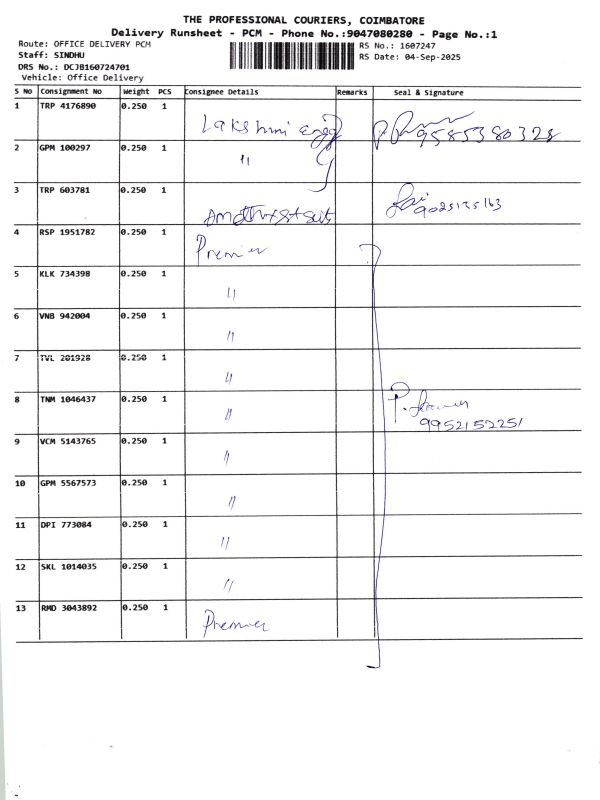 THE PROFESSIONAL COURIERS, COIMBATORE
Delivery Runsheet - PCM - Phone No.:9047080280 - Page No.:1
Route: OFFICE DELIVERY PCM RS No.: 1607247
Staff: SINDHU RS Date: 04-Sep-2025
DRS No.: DCJB160724701
Vehicle: Office Delivery
S NO Consignment No Weight PCS Consignee Details Remarks Seal & Signature
1 TRP 4176890 0.250 1
Lakshmi Engg 9585380328
2 GPM 100297 0.250 1
"
3 TRP 603781 0.250 1
9025135163
4 RSP 1951782 0.250 1
Premier
5 KLK 734398 0.250 1
"
6 VNB 942004 0.250 1
"
7 TVL 201928 0.250 1
"
8 TNM 1046437 0.250 1
"
9952152251
9 VCM 5143765 0.250 1
"
10 GPM 5567573 0.250 1
"
11 DPI 773084 0.250 1
"
12 SKL 1014035 0.250 1
"
13 RMD 3043892 0.250 1
Premier